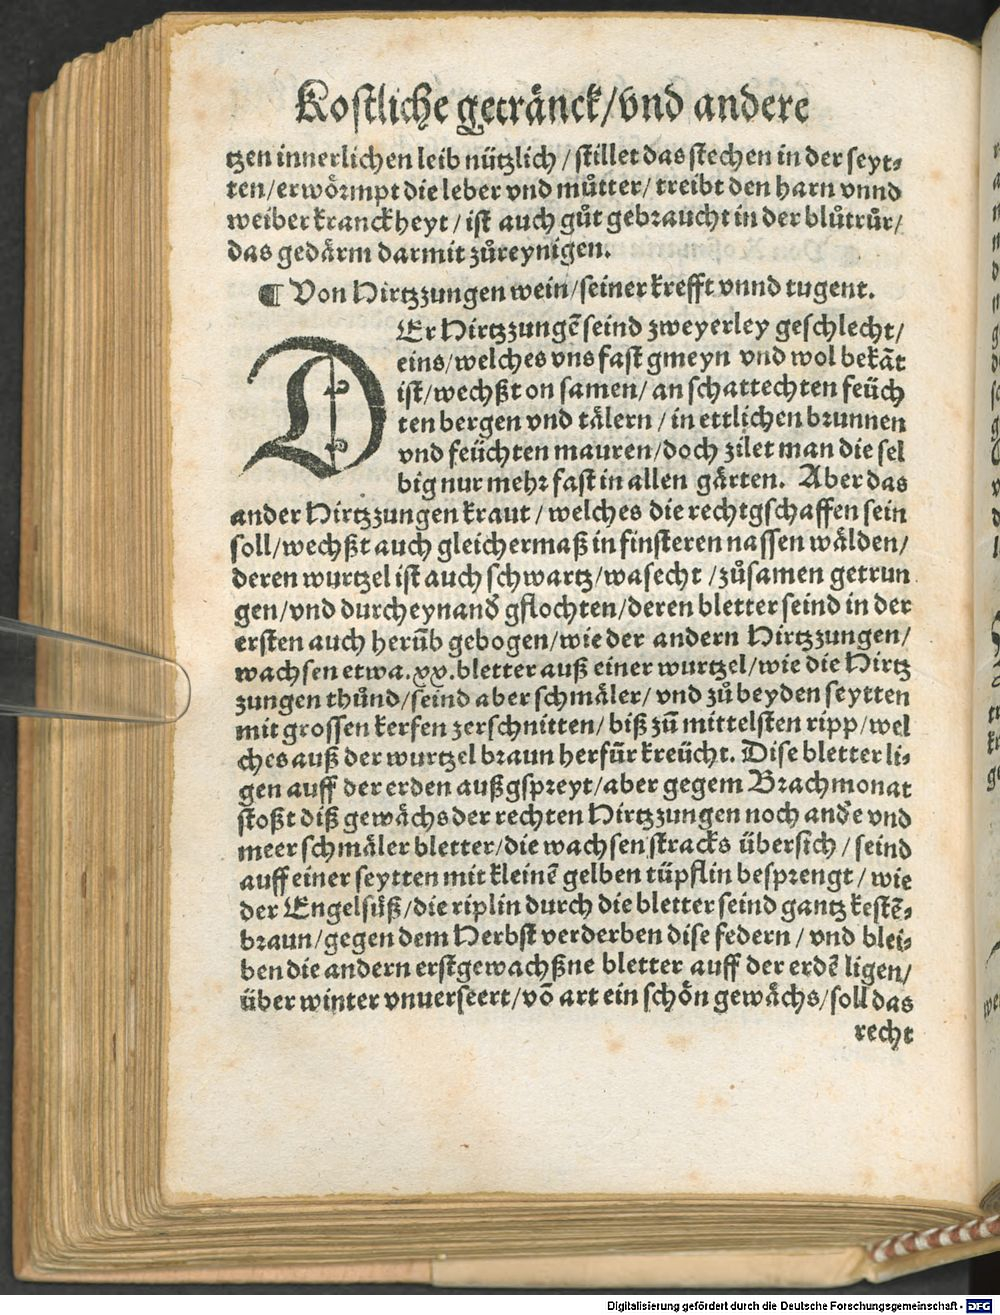 Kostliche getränck/vnd andere
tzen innerlichen leib nützlich / stillet das stechen in der seyt⸗
ten/erwörmpt die leber vnd můtter/ treibt den harn vnnd
weiber kranckheyt / ist auch gůt gebraucht in der blůtrůr/
das gedärm darmit zůreynigen.
¶ Von Hirtzzungen wein/seiner krefft vnnd tugent.
DEr Hirtzzungẽ seind zweyerley geschlecht/
eins/welches vns fast gmeyn vnd wol bekãt
ist/wechßt on samen/ an schattechten feüch
ten bergen vnd tälern / in ettlichen brunnen
vnd feüchten mauren/doch zilet man die sel
big nur mehr fast in allen gärten. Aber das
ander Hirtzzungen kraut / welches die rechtgschaffen sein
soll/wechßt auch gleichermaß in finsteren nassen wälden/
deren wurtzel ist auch schwartz/wasecht /zůsamen getrun
gen/vnd durcheynand̕ gflochten/deren bletter seind in der
ersten auch herũb gebogen/wie der andern Hirtzzungen/
wachsen etwa.xx.bletter auß einer wurtzel/wie die Hirtz
zungen thůnd/seind aber schmäler/ vnd zů beyden seytten
mit grossen kerfen zerschnitten/ biß zũ mittelsten ripp/wel
ches auß der wurtzel braun herfür kreücht. Dise bletter li⸗
gen auff der erden außgspreyt/aber gegem Brachmonat
stoßt diß gewächs der rechten Hirtzzungen noch and̕e vnd
meer schmäler bletter/die wachsen stracks übersich / seind
auff einer seytten mit kleinẽ gelben tüpflin besprengt / wie
der Engelsüß/die riplin durch die bletter seind gantz kestẽ⸗
braun/gegen dem Herbst verderben dise federn / vnd blei⸗
ben die andern erstgewachßne bletter auff der erdẽ ligen/
über winter vnuerseert/võ art ein schön gewächs/soll das
recht
Digitalisierung gefördert durch die Deutsche Forschungsgemeinschaft - DFG